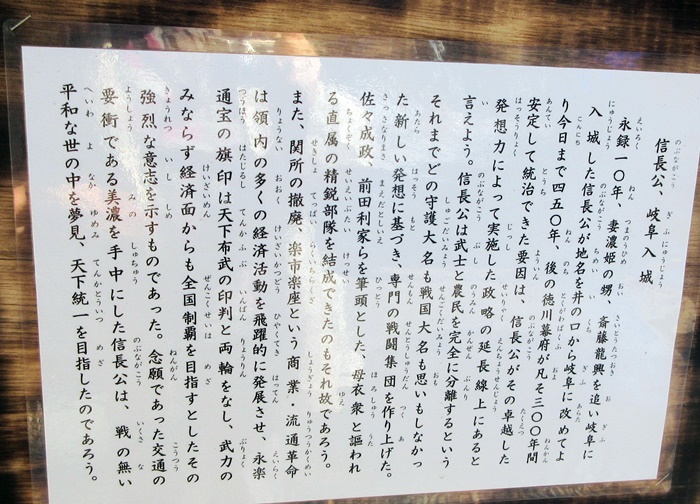 信長公、岐阜入城
永禄一〇年、妻濃姫の甥、斎藤龍興を追い岐阜に
入城した信長公が地名を井の口から岐阜に改めてよ
り今日まで四五〇年、後の徳川幕府が凡そ三〇〇年間
安定して統治できた要因は、信長公がその卓越した
発想力によって実施した政略の延長線上にあると
言えよう。信長公は武士と農民を完全に分離するという
それまでどの守護大名も戦国大名も思いもしなかっ
た新しい発想に基づき、専門の戦闘集団を作り上げた。
佐々成政、前田利家らを筆頭とした、母衣衆と謳われ
る直属の精鋭部隊を結成できたのもそれ故であろう。
また、関所の撤廃、楽市楽座という商業・流通革命
は領内の多くの経済活動を飛躍的に発展させ、永楽
通宝の旗印は天下布武の印判と両輪をなし、武力の
みならず経済面からも全国制覇を目指すとしたその
強烈な意志を示すものであった。念願であった交通の
要衝である美濃を手中にした信長公は、戦の無い
平和な世の中を夢見、天下統一を目指したのであろう。